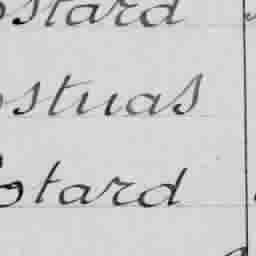 ostard
ostuas
otard